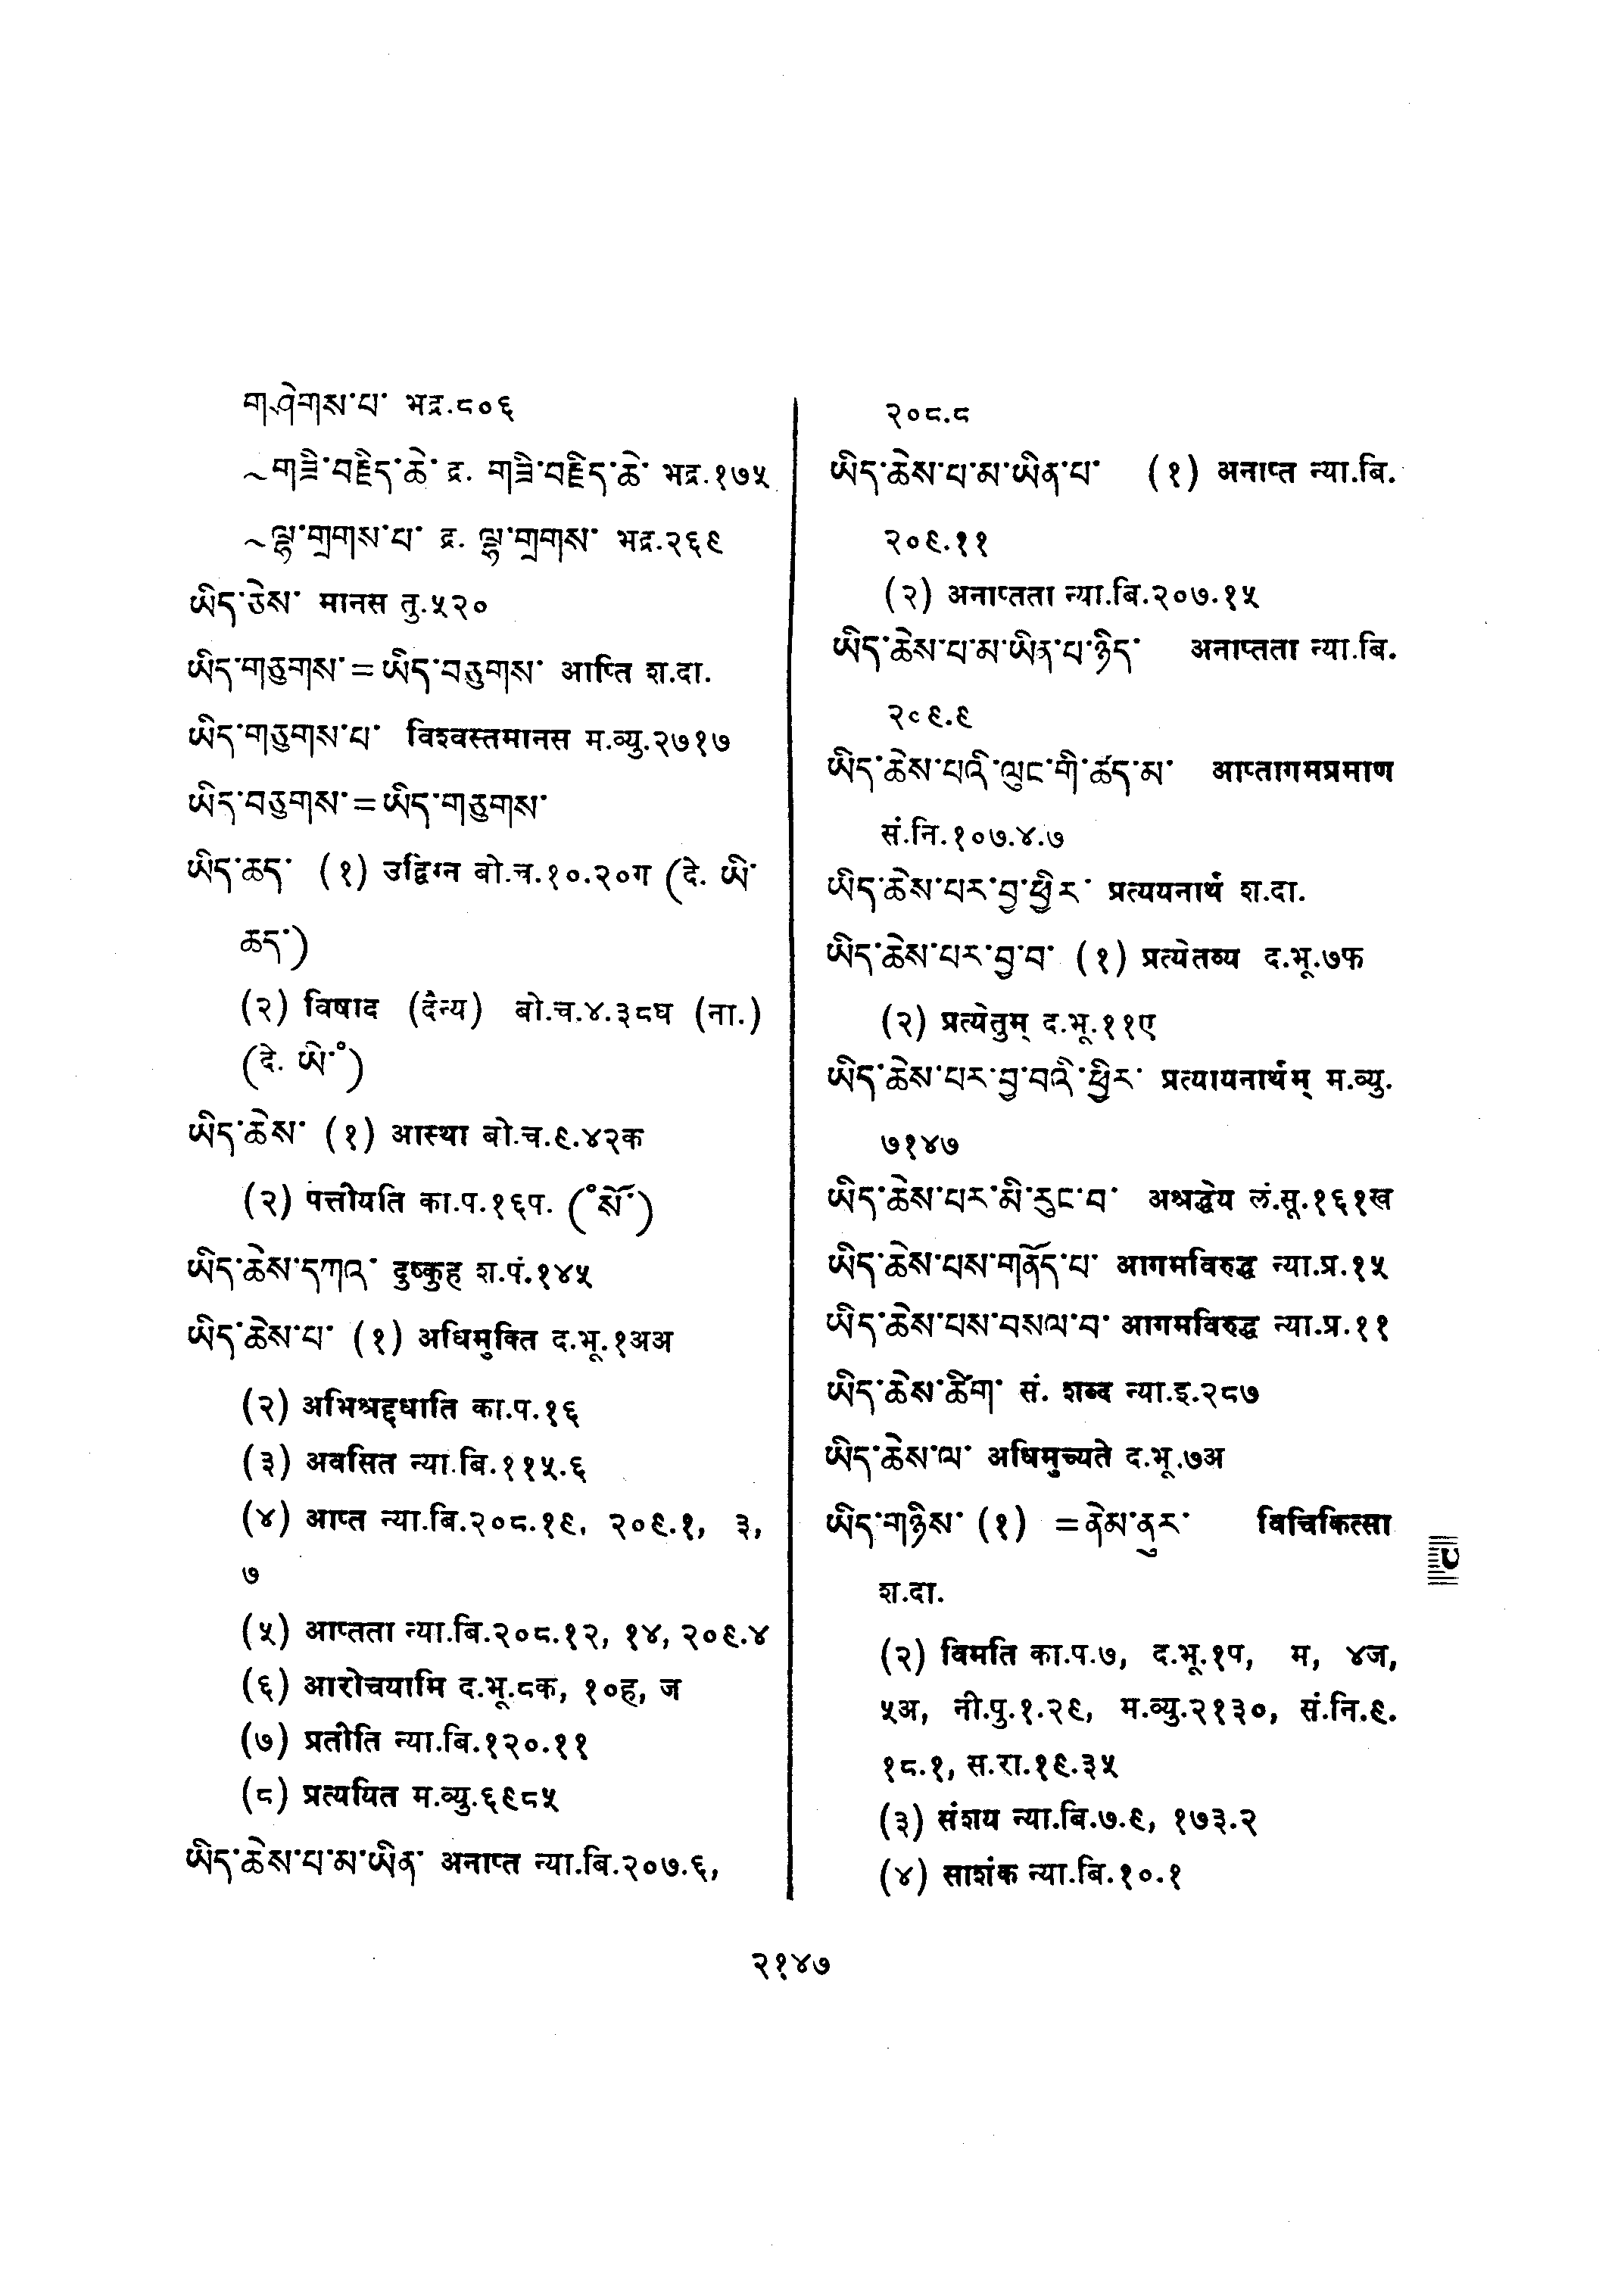 གཤེགས་པ་ भद्र.८०६
~གཟི་བརྗིད་ཆེ་ द्र. གཟི་བརྗིད་ཆེ་ भद्र.१७५
~ལྷ་གྲགས་པ་ द्र. ལྷ་གྲགས་ भद्र.२६९
ཡིད་ཅེས་ मानस तु.५२०
ཡིད་གཅུགས་=ཡིད་བཅུགས་ आप्ति श.दा.
ཡིད་གཅུགས་པ་ विश्वस्तमानस म.व्यु.२७१७
ཡིད་བཅུགས་=ཡིད་གཅུགས་
ཡིད་ཆད་ (१) उद्विग्न बो.च.१०.२०ग (दे. ཡི་
ཆད་)
(२) विषाद (दैन्य) बो.च.४.३८घ (ना.)
(दे. ཡེ་॰)
ཡིད་ཆེས་ (१) आस्था बो.च.९.४२क
(२) पत्तीयति का.प.१६प. (॰སོ་)
ཡིད་ཆེས་དཀའ་ दुष्कुह श.पं.१४५
ཡིད་ཆེས་པ་ (१) अधिमुक्ति द.भू.१अअ
(२) अभिश्रद्दधाति का.प.१६
(३) अवसित न्या.बि.११५.६
(४) आप्त न्या.बि.२०८.१९, २०९.१, ३,
७
(५) आप्तता न्या.बि.२०८.१२, १४, २०९.४
(६) आरोचयामि द.भू.८क, १०ह, ज
(७) प्रतीति न्या.बि.१२०.११
(८) प्रत्ययित म.व्यु.६९८५
ཡིད་ཆེས་པ་མ་ཡིན་ अनाप्त न्या.बि.२०७.६,
२०८.८
ཡིད་ཆེས་པ་མ་ཡིན་པ་ (१) अनाप्त न्या.बि.
२०९.११
(२) अनाप्तता न्या.बि.२०७.१५
ཡིད་ཆེས་པ་མ་ཡིན་པ་ཉིད་ अनाप्तता न्या.बि.
२०९.९
ཡིད་ཆེས་པའི་ལུང་གི་ཚད་མ་ आप्तागमप्रमाण
सं.नि.१०७.४.७
ཡིད་ཆེས་པར་བྱ་ཕྱིར་ प्रत्ययनार्थ श.दा.
ཡིད་ཆེས་པར་བྱ་བ་ (१) प्रत्येतव्य द.भू.७फ
(२) प्रत्येतुम् द.भू.११ए
ཡིད་ཆེས་པར་བྱ་བའི་ཕྱིར་ प्रत्यायनार्थम् म.व्यु.
७१४७
ཡིད་ཆེས་པར་མི་རུང་བ་ अश्रद्धेय लं.सू.१६१ख
ཡིད་ཆེས་པས་གནོད་པ་ आगमविरुद्ध न्या.प्र.१५
ཡིད་ཆེས་པས་བསལ་བ་ आगमविरुद्ध न्या.प्र.११
ཡིད་ཆེས་ཚིག་ सं. शब्द न्या.इ.२८७
ཡིད་ཆེས་ལ་ अधिमुच्यते द.भू.७अ
ཡིད་གཉིས་ (१) =ནེམ་ནུར་ विचिकित्सा
श.दा.
(२) विमति का.प.७, द.भू.१प, म, ४ज,
५अ, नी.पु.१.२९, म.व्यु.२१३०, सं.नि.९.
१८.१, स.रा.१९.३५
(३) संशय न्या.बि.७.९, १७३.२
(४) साशंक न्या.बि.१०.१
२१४७